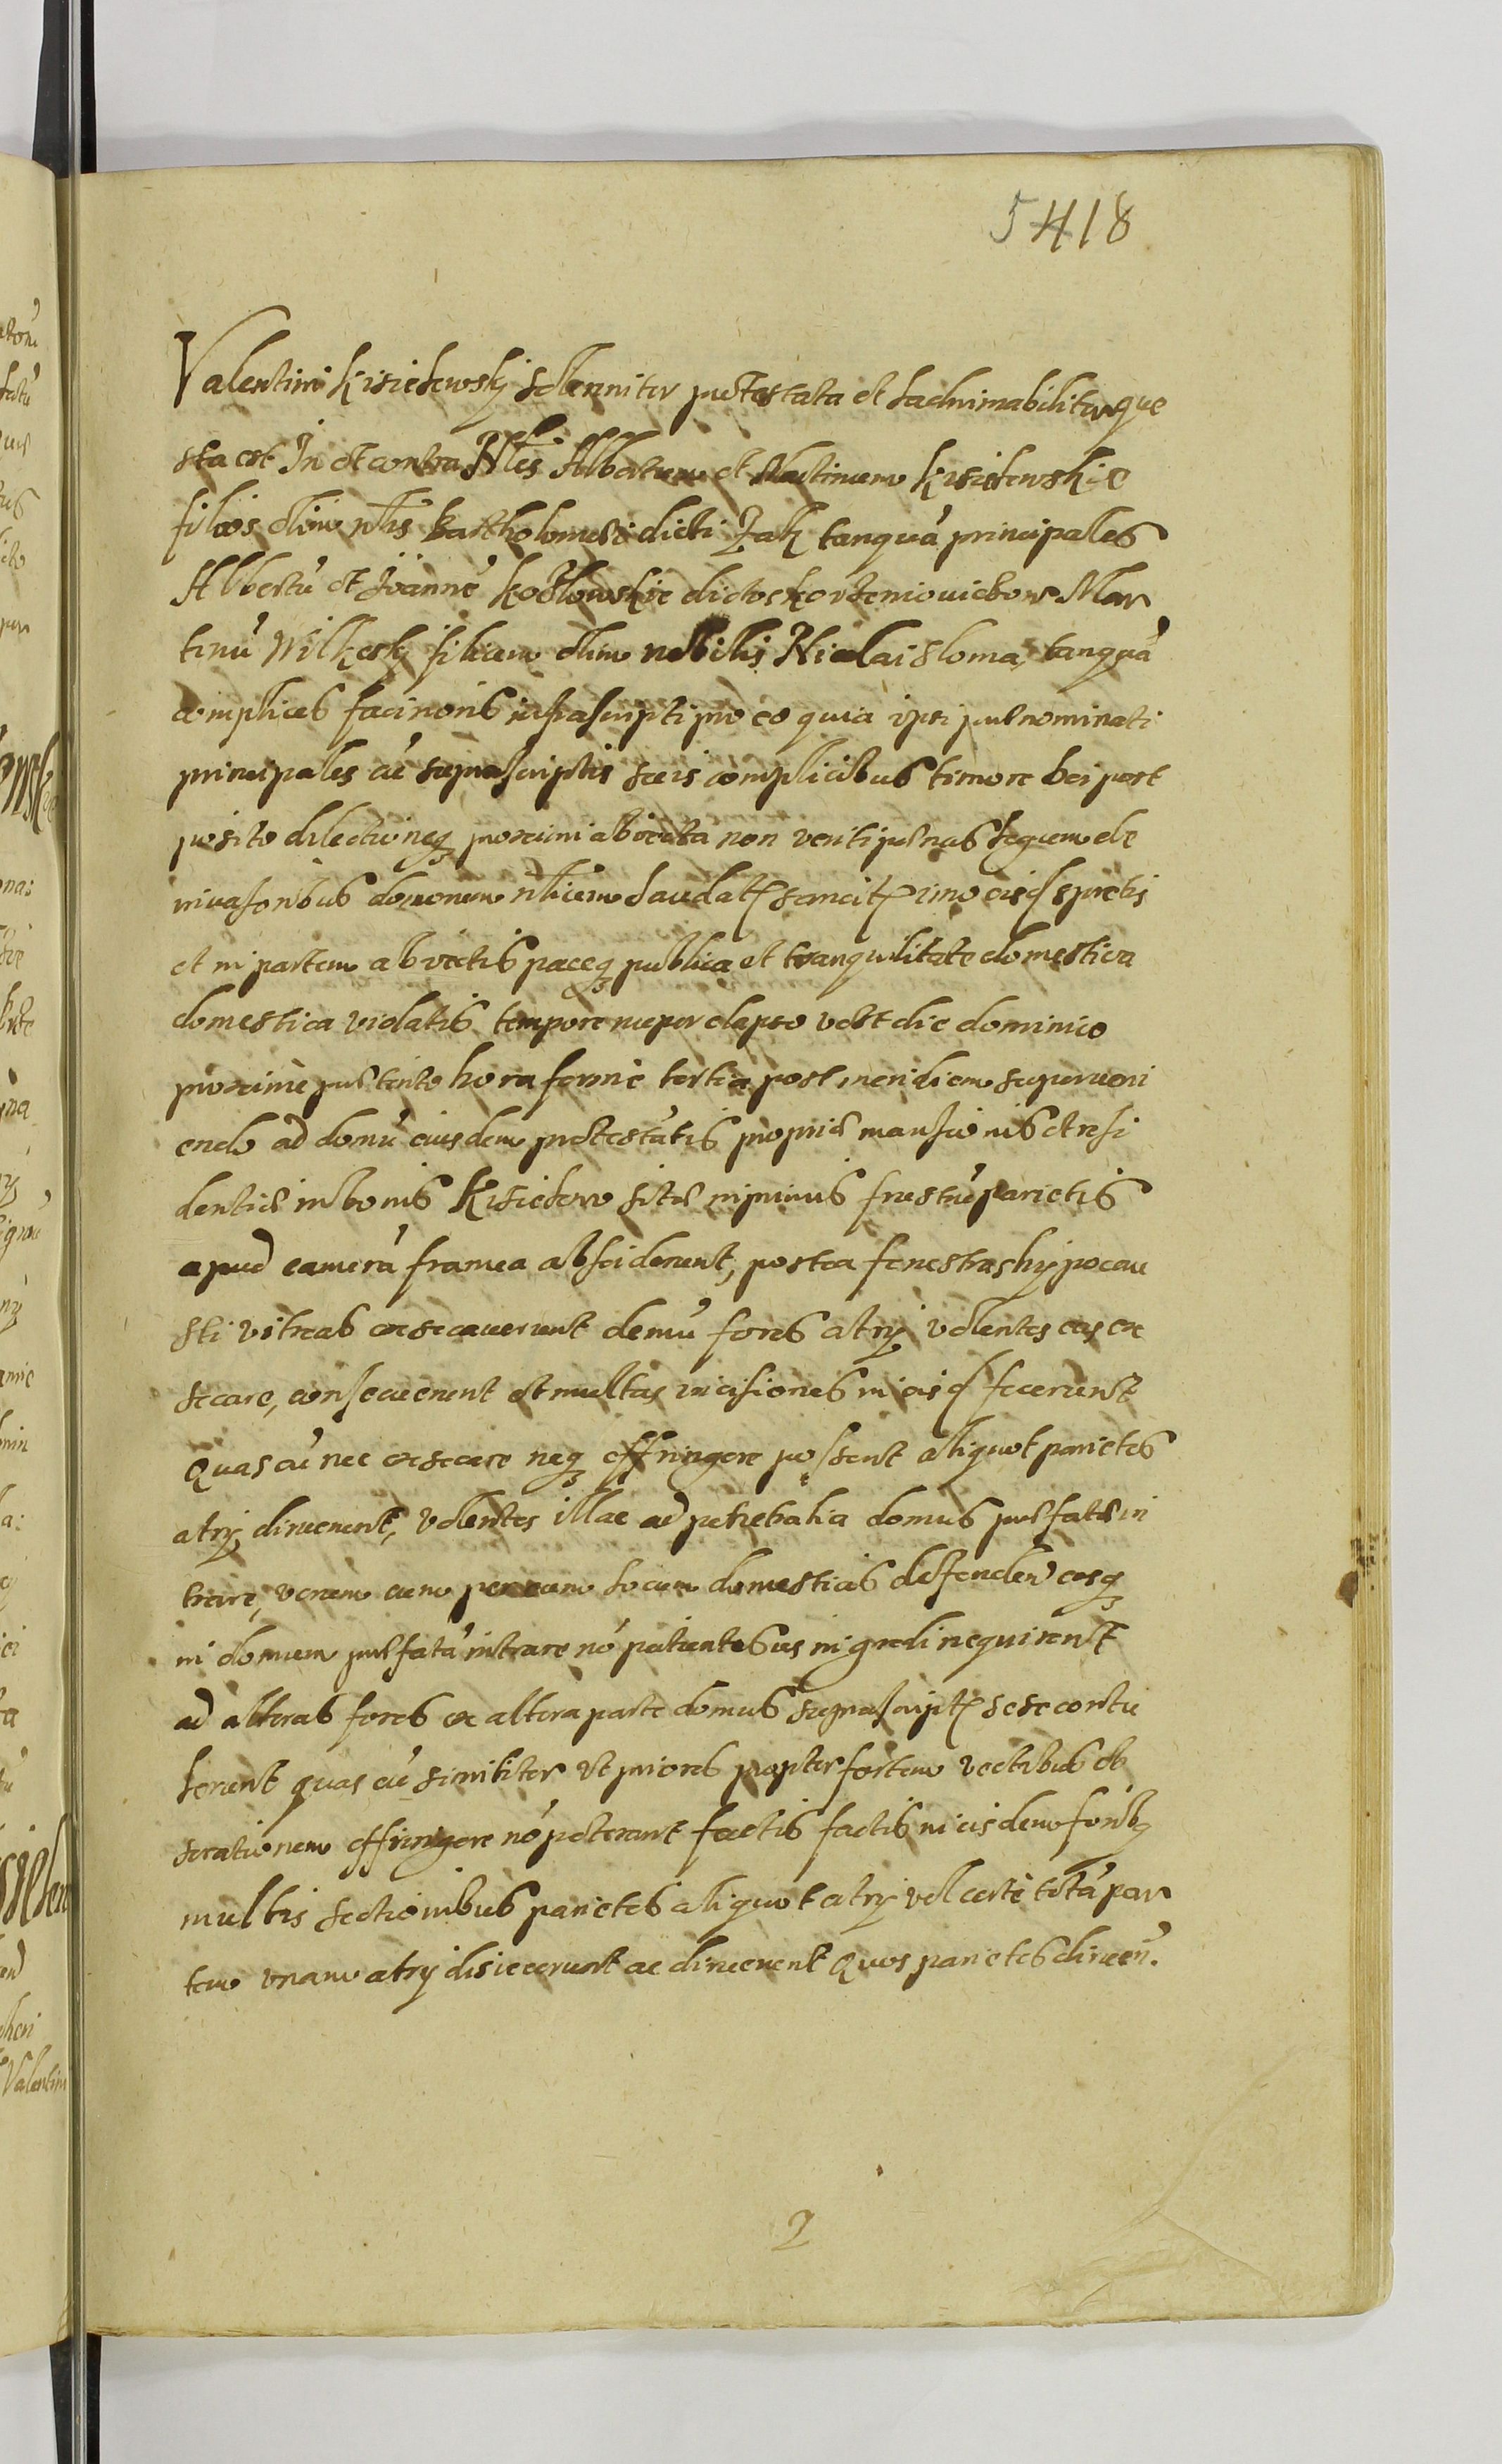 5418
Valentini Kisielewsky solenniter protestata et lachrimabiliter que
sta est In et contra Nles Albertum et Martinum Kisielewskie
filios olim nlis Bartholomei dicti Zak tanquā principales
Albertū et Joannē Kozlowskie dictos korzeniovictows Mar
tinū Wilkesky filium olim nobilis Nicolai Sloma, tanquā
complices facinoris infrascripti pro eo quia ipsi prnominati
principales cū suprascriptis suis complicibus timore Dei post
posito dilectioneq proximi abiecta non veriti pnas legum de
invasoribus domorum nlium laudatƷ sancitƷ imo eisd spretis
et in partem abiectis paceq publica et tranquilitate domestica
domestica violatis tempore nuper elapso videlt die dominico
proxime prterito hora ferme tertia post meridiem superveni
endo ad domū eiusdem protestātis propriæ mansionis et resi
dentiæ in bonis Kisielow sitæ inprimis frustū parietis
apud camerā framea absciderunt, postea fenestras hypocau
sti vitreas exsecaverunt demū fores atrÿ volentes eas ex
secare, consecuerunt et multas incisiones in eisd fecerunt
Quas cū nec exsecare neq effringere possent aliquot parietes
atrÿ diruerunt, volentes illac ad penetralia domus prfatæ in
trare, verum cum per eum locum domesticis defender easq
in domum prfatā intrare nō patientibus ingredi nequirent
ad alteras fores ex altera parte domus suprascriptƷ sese contu
lerunt quas cū similiter vt priores propter fortem vectibus ob
serationem effringere nō poterant factis factis in eisdem foribƷ
multis sectionibus parietes aliquot atrÿ vel certe totā par
tem vnam atrÿ disiecerunt ac diruerunt Quos parietes dirueñ.
2